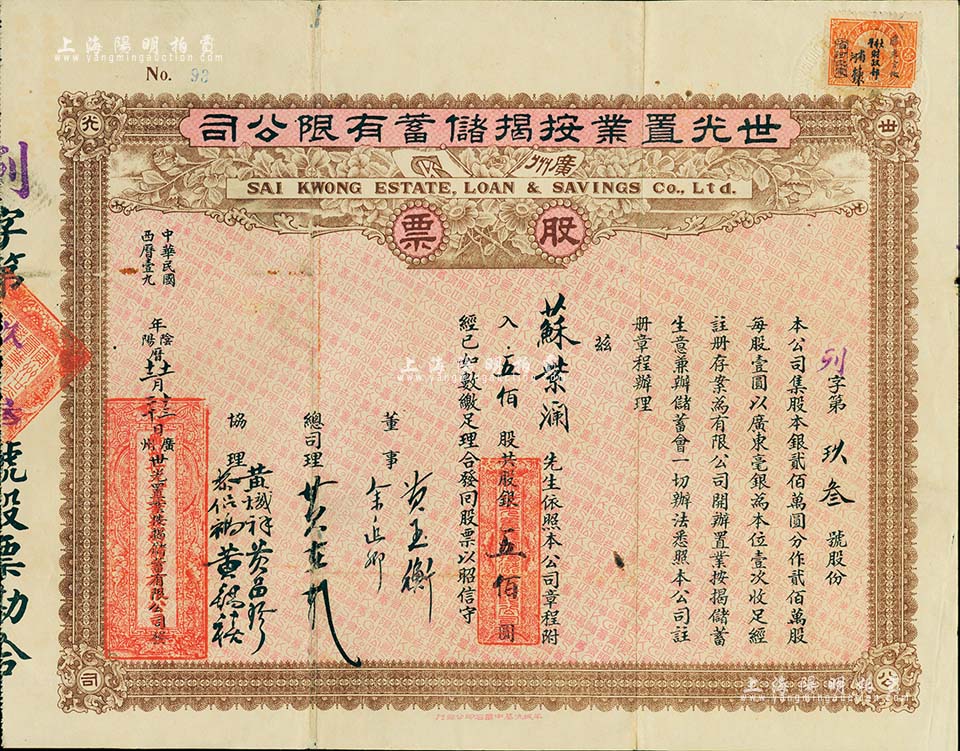 上海陽明拍賣
www.yangmingauction.com
No. 93
世光置業按揭儲蓄有限公司
廣州
SAI KWONG ESTATE, LOAN & SAVINGS Co., Ltd.
股票
列字第玖叁號股份
本公司集股本銀貳佰萬圓分作貳佰萬股
每股壹圓以廣東毫銀為本位壹次收足經
註册存案為有限公司開辦置業按揭儲蓄
生意兼辦儲蓄會一切辦法悉照本公司註
册章程辦理
茲
蘇業瀾先生依照本公司章程附
入五佰股共股銀五佰圓
經已如數繳足理合發囘股票以昭信守
董事
黃玉衡
余正卿
總司理
協理
黃棫祥
黃昌珍
中華民國
西曆壹九
年陰陽曆
月
日
廣州世光置業按揭儲蓄有限公司發
列字第玖叁號股票勘合
世光公司
上海陽明拍賣
www.yangmingauction.com
上海陽明拍賣
www.yangmingauction.com